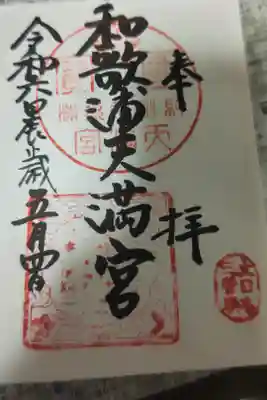 奉拝
和歌浦天満宮
令和六甲辰歳五月四日